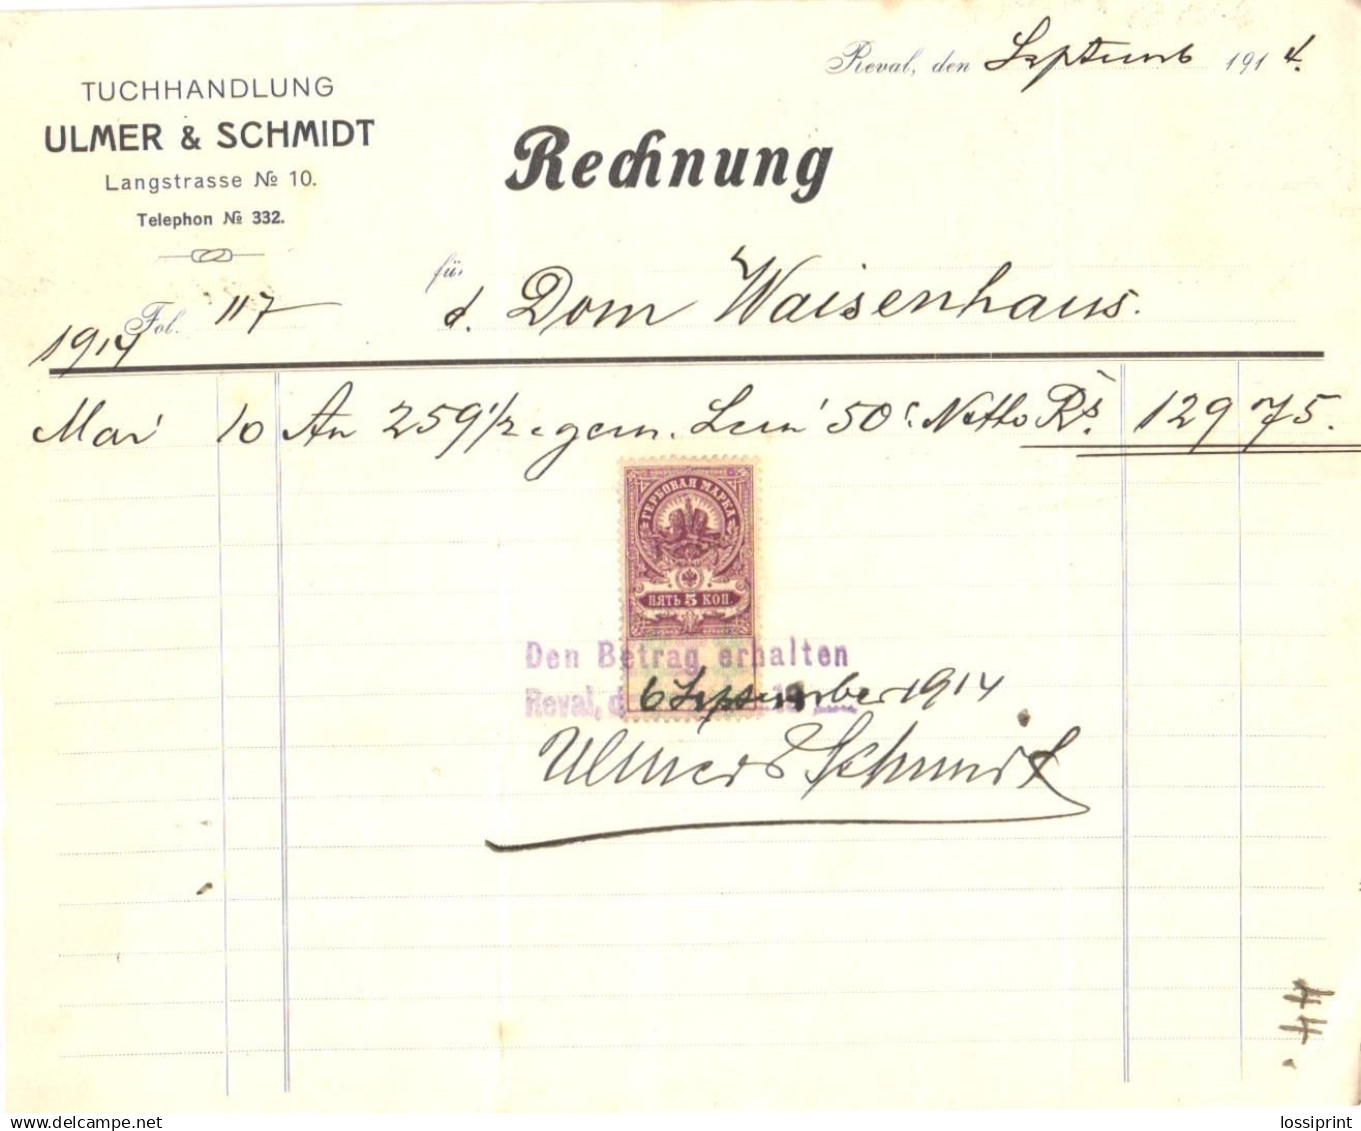 Reval, den Septemb 1914.
TUCHHANDLUNG
ULMER & SCHMIDT
Langstrasse № 10.
Telephon № 332.
Rechnung
für
d. Dom Waisenhaus.
Fol. 117
1914
Mai 10 An 259 1/2 gem. 50 Netto Rs. 129 75.
ГЕРБОВАЯ МАРКА
ПЯТЬ 5 КОП.
Den Betrag erhalten
Reval, d 6 September 1914
Ulmer & Schmidt
44.
www.delcampe.net
lossiprint